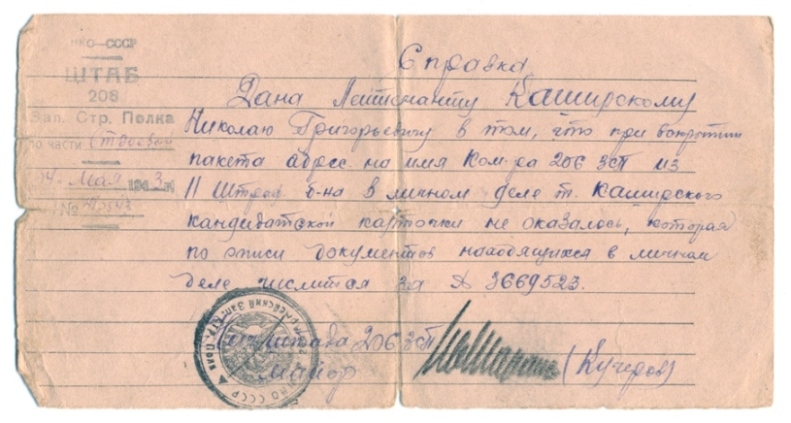 НКО–СССР
ШТАБ
206
Зап. Стр. Полка
по части строевой
Мая 1943 г.
№
Справка
Дана Лейтенанту Каширскому
Николаю Григорьевичу в том, что при вскрытии
пакета адрес. на имя Ком-ра 206 ЗСП из
11 Штраф. б-на в личном деле т. Каширского
кандидатской карточки не оказалось, которая
по описи документов находящихся в личном
деле числится за № 3669523.
штаба 206 ЗСП
Майор
(Кучеров)